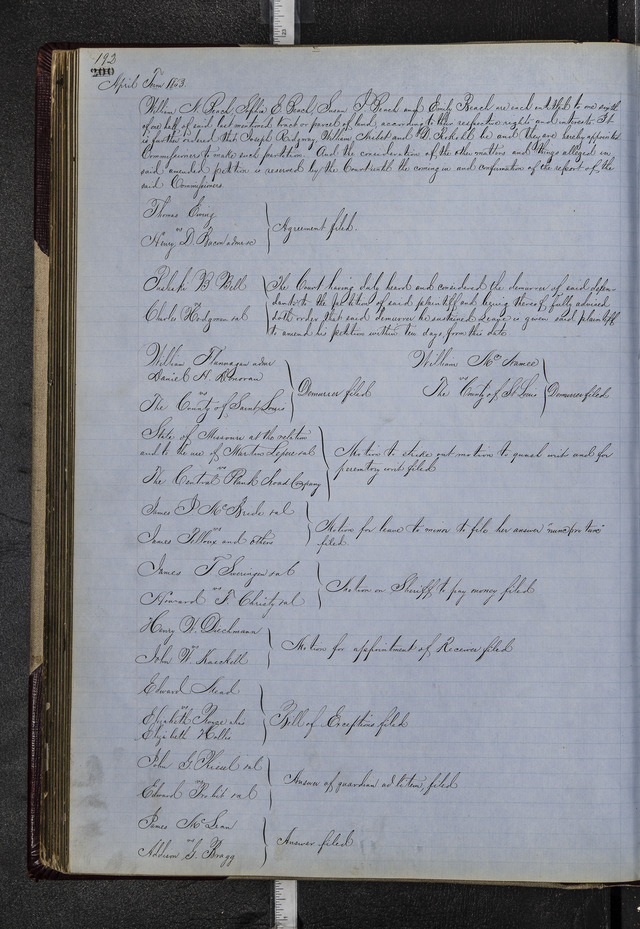 192
200
April Term 1863.
William N. Beach, Sophia E. Beach, Susan J. Beach and Emily Beach are each entitled to one eighth
of one half of said last mentioned tract or parcel of land, according to their respective rights and interests. It
is further ordered that Joseph Rodgers, William and D. be and they are hereby appointed
Commissioners to make such partition. And the consideration of the other matters and things alleged in
said amended petition is reserved by the Court until the coming in and confirmation of the report of the
said Commissioners.
Thomas Ewing
vs
Henry D. Bacon admr &c
Agreement filed.
B. Bell
vs
Charles Hodgman et al
The Court having duly heard and considered the demurrer of said defen-
dants to the petition of said plaintiff and being thereof fully advised
doth order that said demurrer be sustained. Leave is given said plaintiff
to amend his petition within ten days from this date
William Flannagan admr
Daniel H. Donovan
vs
The County of Saint Louis
Demurrer filed
William
vs
The County of St Louis
Demurrer filed
State of Missouri at the relation
and to the use of Martin et al
vs
The Central Plank Road Company
Motion to strike out motion to quash writ and for
peremtory writ filed
James P. McBride et al
vs
James and others
Motion for leave to minor to file her answer "nunc pro tunc"
filed.
James T. Sweringen et al
vs
Howard F. Christy et al
Motion on Sheriff to pay money filed
Henry W. Dieckmann
vs
John W.
Motion for appointment of Receiver filed
Edward Mead
vs
Elizabeth alias
Elizabeth
Bill of Exceptions filed
John G. et al
vs
Edward et al
Answer of guardian ad litem, filed
James McLean
vs
Addison G. Bragg
Answer filed